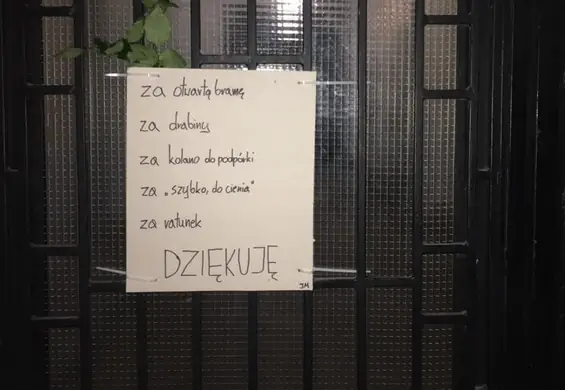 za otwartą bramę
za drabiny
za kolano do podpórki
za „szybko, do cienia"
za ratunek
DZIĘKUJĘ
JM